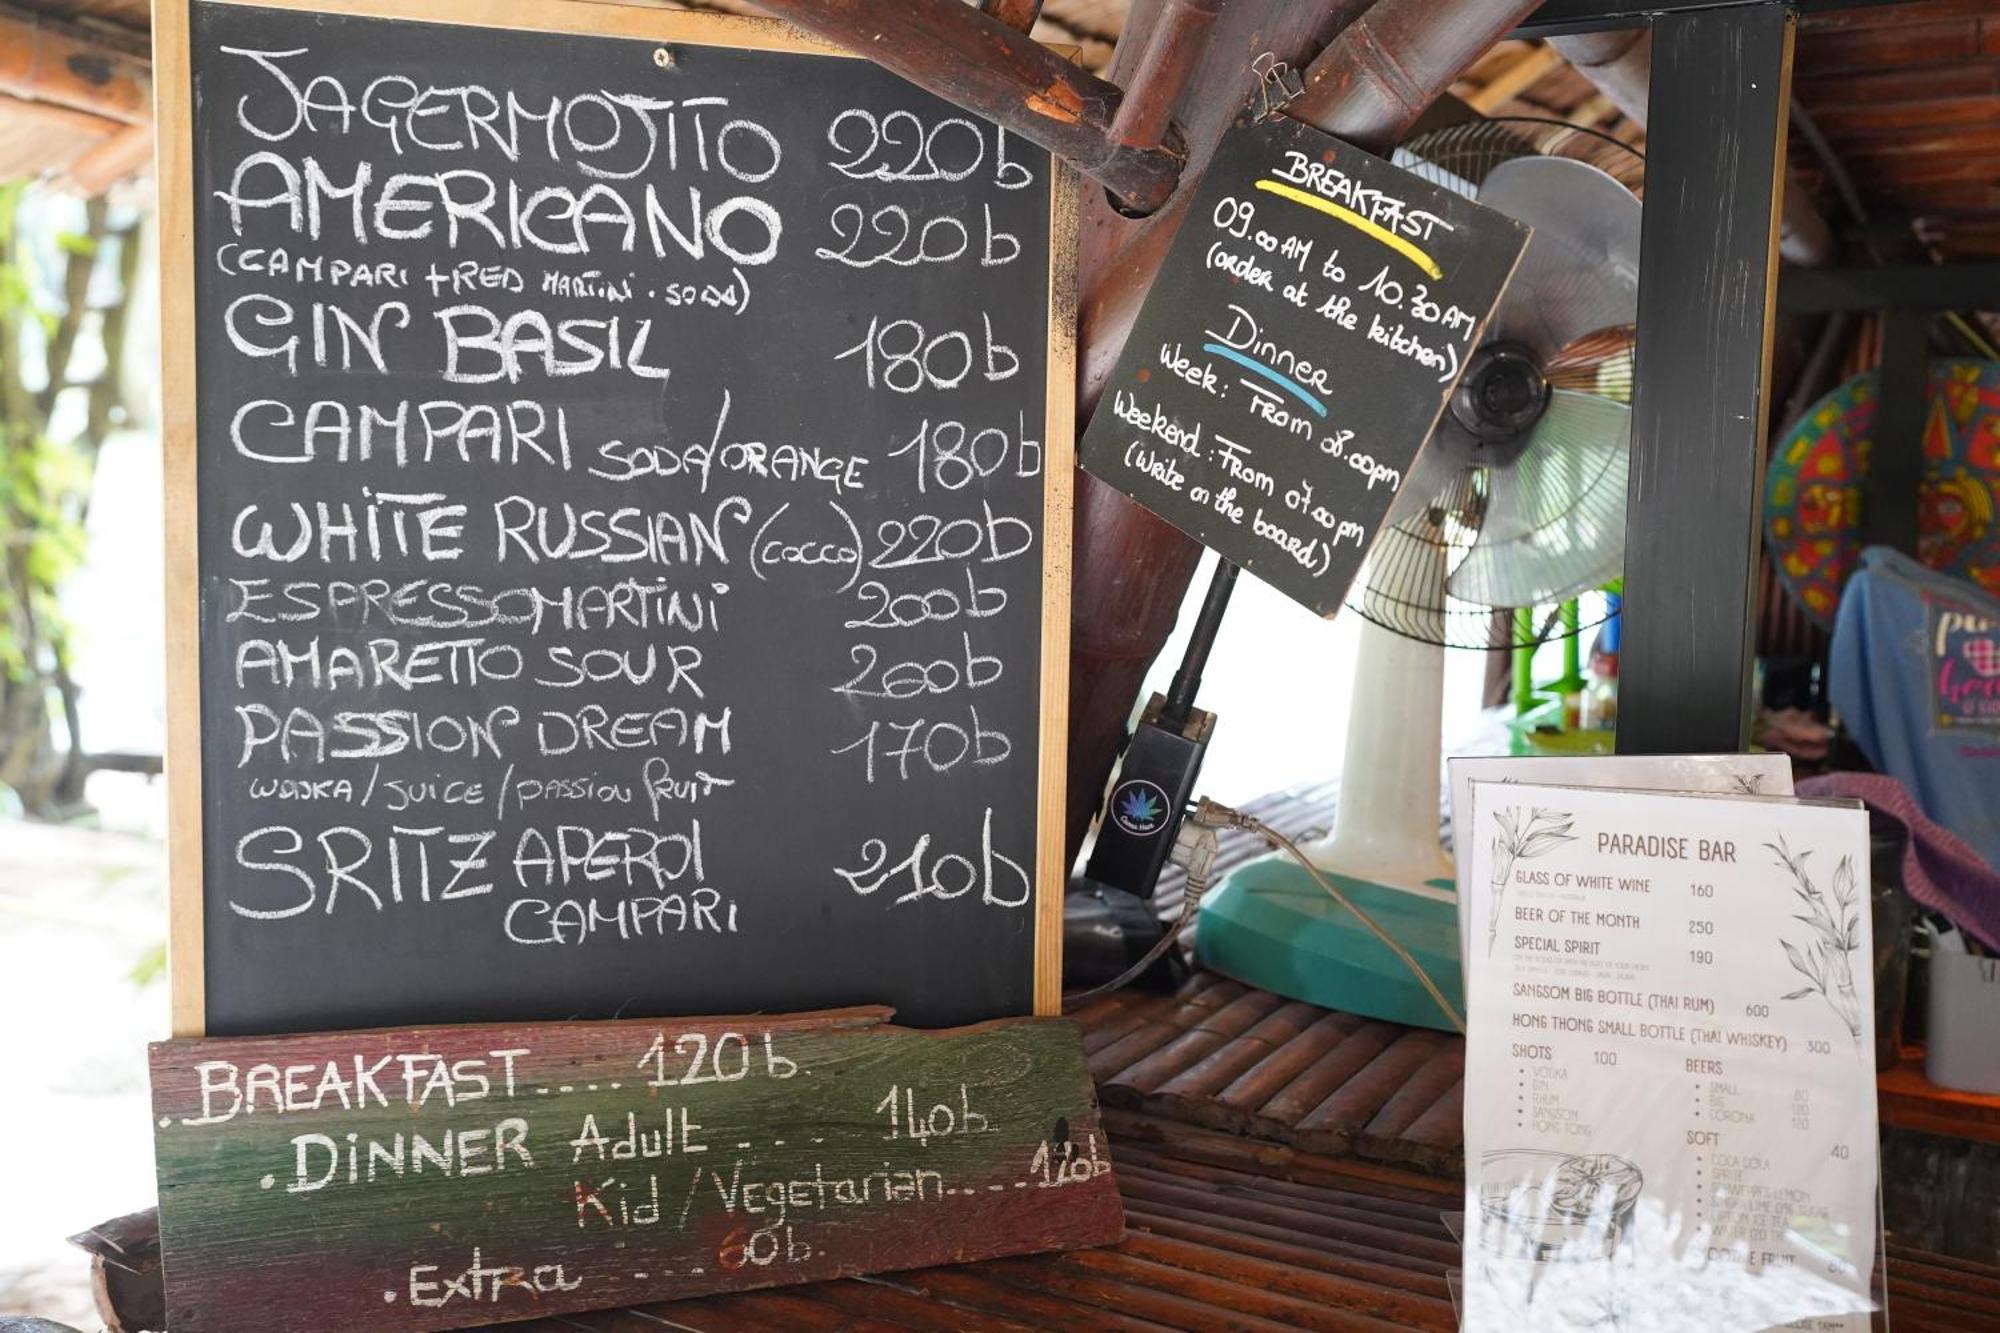 JAGERMOJITO 220b
AMERICANO 220b
(CAMPARI + RED MARTINI . SODA)
GIN BASIL 180b
CAMPARI SODA/ORANGE 180b
WHITE RUSSIAN (cocco) 220b
ESPRESSOMARTINI 200b
AMARETTO SOUR 200b
PASSION DREAM 170b
WODKA / JUICE / passion fruit
SRITZ APEROL 210b
CAMPARI
.BREAKFAST .... 120b.
.DINNER Adult ... 140b.
Kid / Vegetarian .... 120b
.Extra ... 60b.
BREAKFAST
09.00 AM to 10.30 AM
(order at the kitchen)
Dinner
Week: From 08.00pm
Weekend: From 07.00pm
(Write on the board)
PARADISE BAR
GLASS OF WHITE WINE 160
BEER OF THE MONTH 250
SPECIAL SPIRIT 190
SANGSOM BIG BOTTLE (THAI RUM) 600
HONG THONG SMALL BOTTLE (THAI WHISKEY) 300
SHOTS 100
• VODKA
• GIN
• RHUM
• SANGSOM
• HONG TONG
BEERS
• SMALL 80
• BIG
• CORONA
SOFT 40
• COCA COLA
• SPRITE
FRUIT